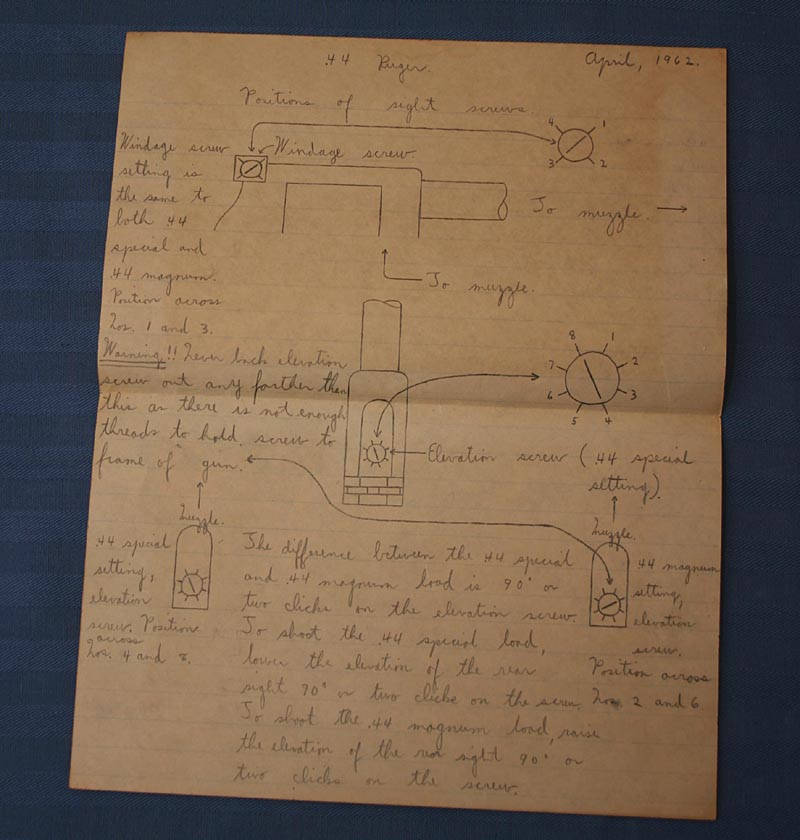 .44 Ruger.
April, 1962.
Positions of sight screws.
4
1
3
2
Windage screw
setting is
the same to
both .44
special and
.44 magnum.
Position across
Nos. 1 and 3.
Windage screw.
To muzzle.
To muzzle.
Warning!! Never back elevation
screw out any farther than
this as there is not enough
threads to hold screw to
frame of gun.
8
1
7
2
6
3
5
4
Elevation screw (.44 special
setting).
Muzzle.
.44 special
setting,
elevation
screw. Position
across
Nos. 4 and 8.
The difference between the .44 special
and .44 magnum load is 90° or
two clicks on the elevation screw.
To shoot the .44 special load,
lower the elevation of the rear
sight 90° or two clicks on the screw.
To shoot the .44 magnum load, raise
the elevation of the rear sight 90° or
two clicks on the screw.
Muzzle.
.44 magnum
setting,
elevation
screw.
Position across
Nos. 2 and 6